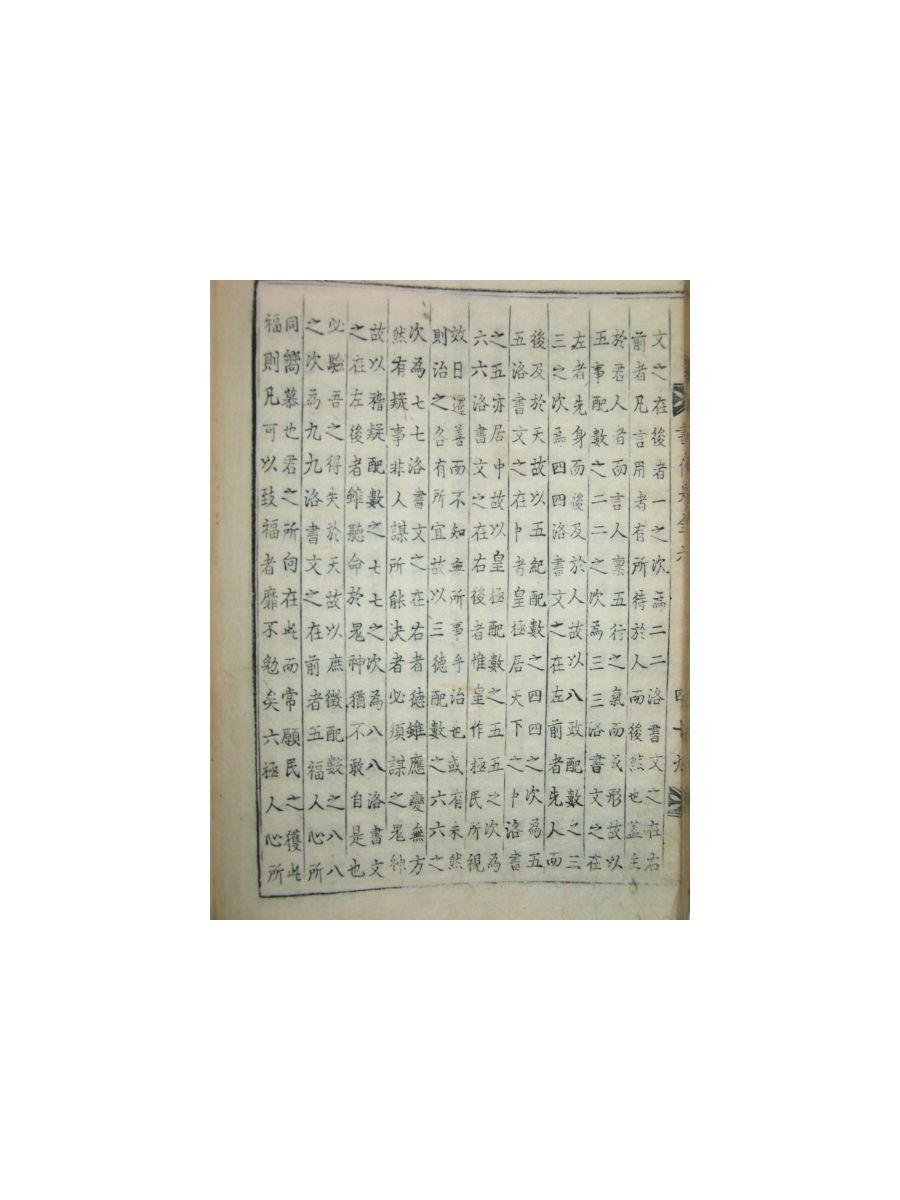 書傳大全六 四十九
文之在後者一之次爲二二洛書文之在右
前者凡言用者有所待於人而後然也蓋主
於君人者而言人稟五行之氣而成形故以
五事配數之二二之次爲三三洛書文之在
左者先身而後及於人故以八政配數之三
三之次爲四四洛書文之在左前者先人而
後及於天故以五紀配數之四四之次為五
五洛書文之在中者皇極居天下之中洛書
之五亦居中故以皇極配數之五五之次為
六六洛書文之在右後者惟皇作極民所視
效日遷善而不知無所事乎治也或有未然
則治之各有所宜故以三德配數之六六之
次為七七洛書文之在右者德雖應變無方
然有疑事非人謀所能決者必須謀之鬼神
故以稽疑配數之七七之次為八八洛書文
之在左後者雖聽命於鬼神猶不敢自是也
必驗吾之得失於天故以庶徵配數之八八
之次為九九洛書文之在前者五福人心所
同嚮慕也君之所向在此而常願民之獲此
福則凡可以致福者靡不勉矣六極人心所